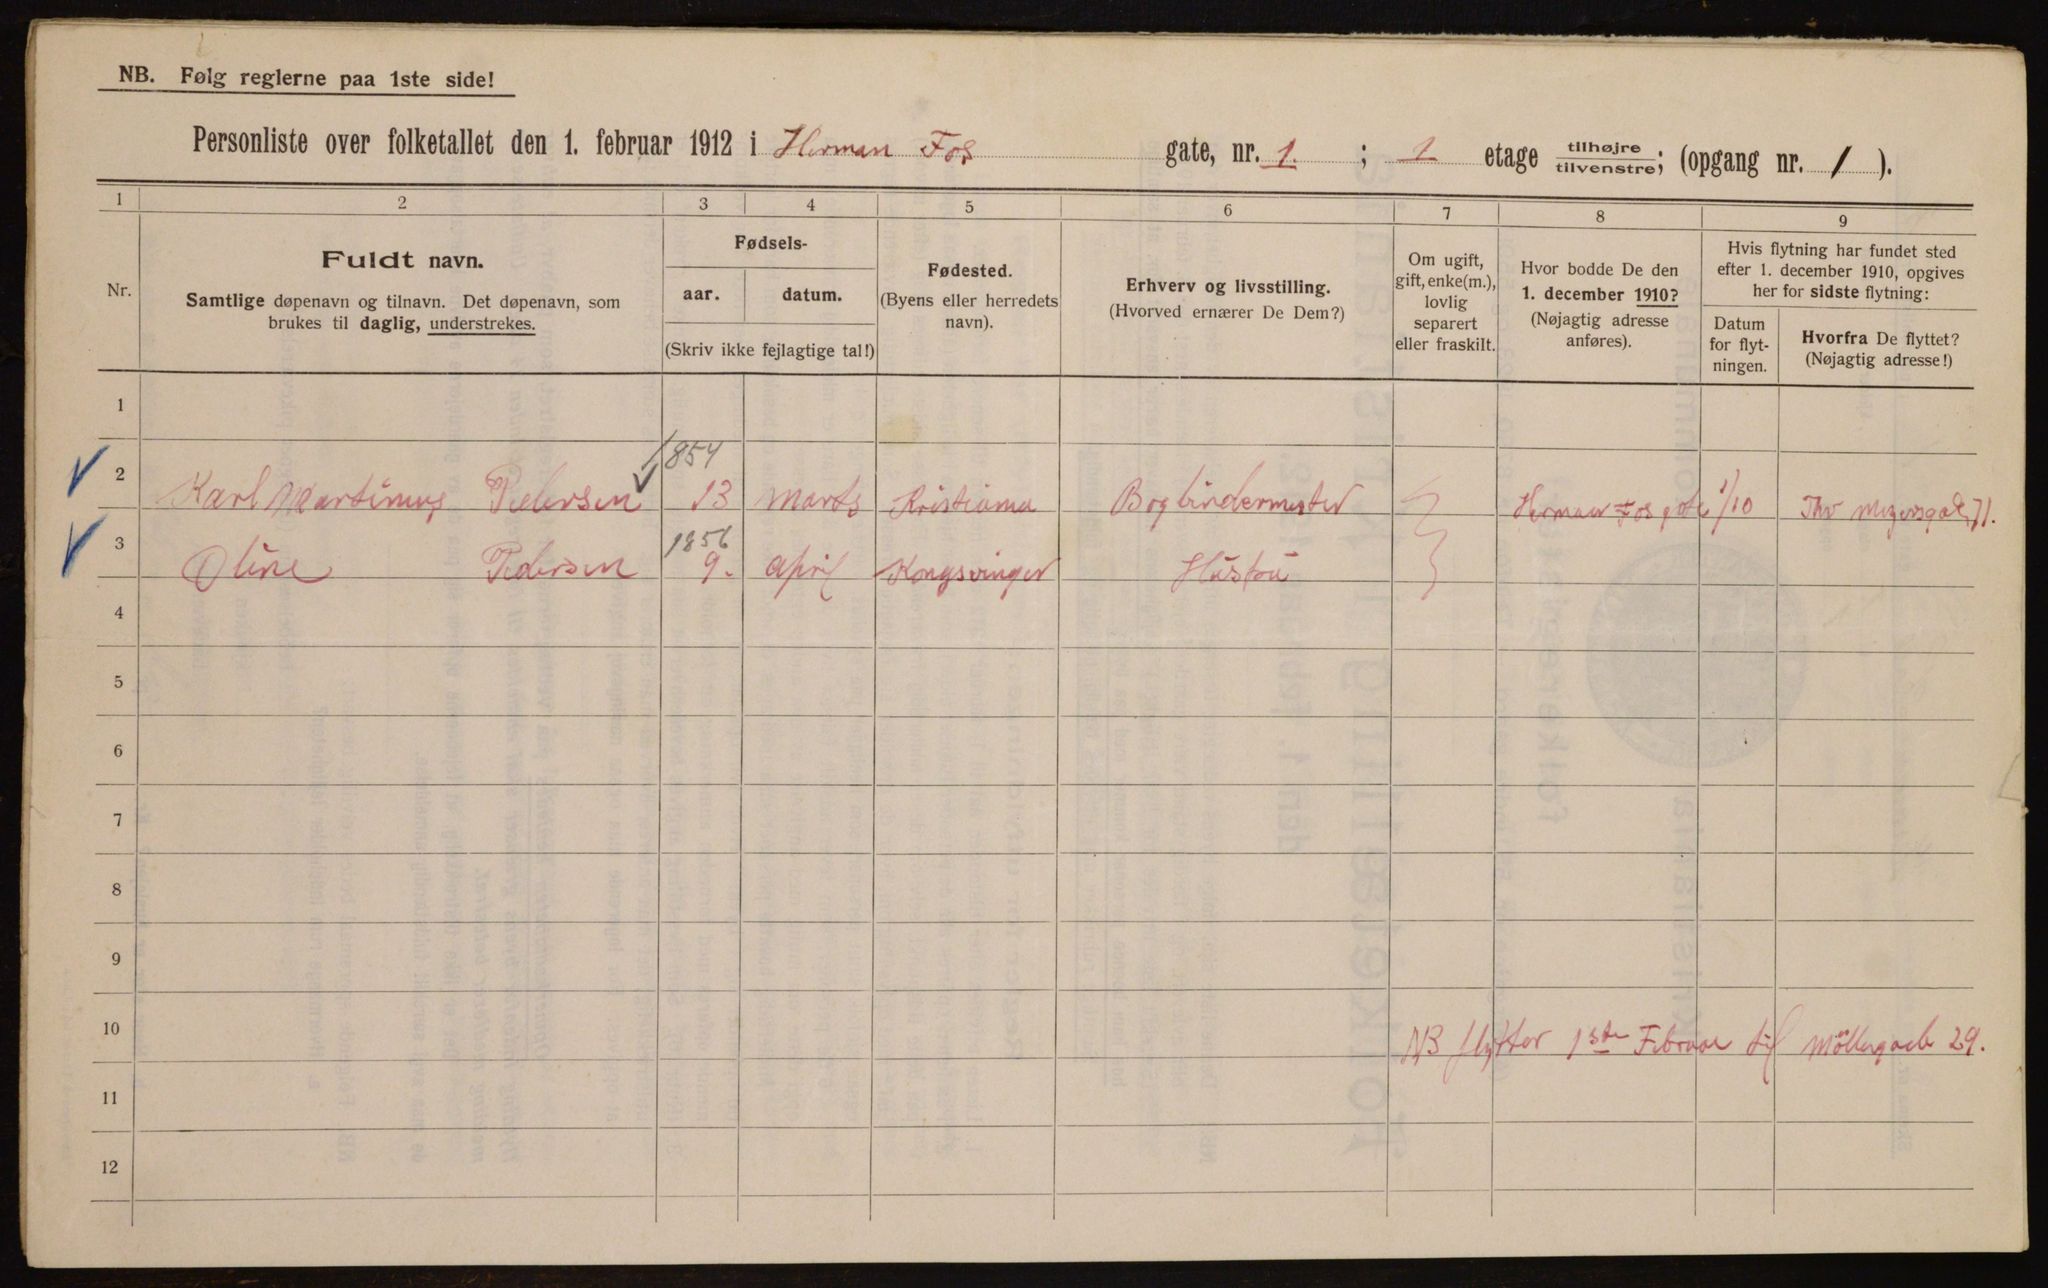 NB. Følg reglerne paa 1ste side!
Personliste over folketallet den 1. februar 1912 i Herman Fos gate, nr. 1. ; 1 etage tilhøjre/tilvenstre; (opgang nr. 1 ).
1 2 3 4 5 6 7 8 9
Nr.
Fuldt navn.
Samtlige døpenavn og tilnavn. Det døpenavn, som
brukes til daglig, understrekes.
Fødsels-
aar. datum.
(Skriv ikke fejlagtige tal!)
Fødested.
(Byens eller herredets
navn).
Erhverv og livsstilling.
(Hvorved ernærer De Dem?)
Om ugift,
gift, enke(m.),
lovlig
separert
eller fraskilt.
Hvor bodde De den
1. december 1910?
(Nøjagtig adresse
anføres).
Hvis flytning har fundet sted
efter 1. december 1910, opgives
her for sidste flytning:
Datum
for flyt-
ningen.
Hvorfra De flyttet?
(Nøjagtig adresse!)
1
1854
2 Karl Martinus Pedersen 13 Marts Kristiania Bogbindermester Herman Fos gate 1/10 Thv Meyersgade 71.
1856
3 Oline Pedersen 9. April Kongsvinger Hustru
4
5
6
7
8
9
10 NB flytter 1ste Februar til Möllergade 29.
11
12